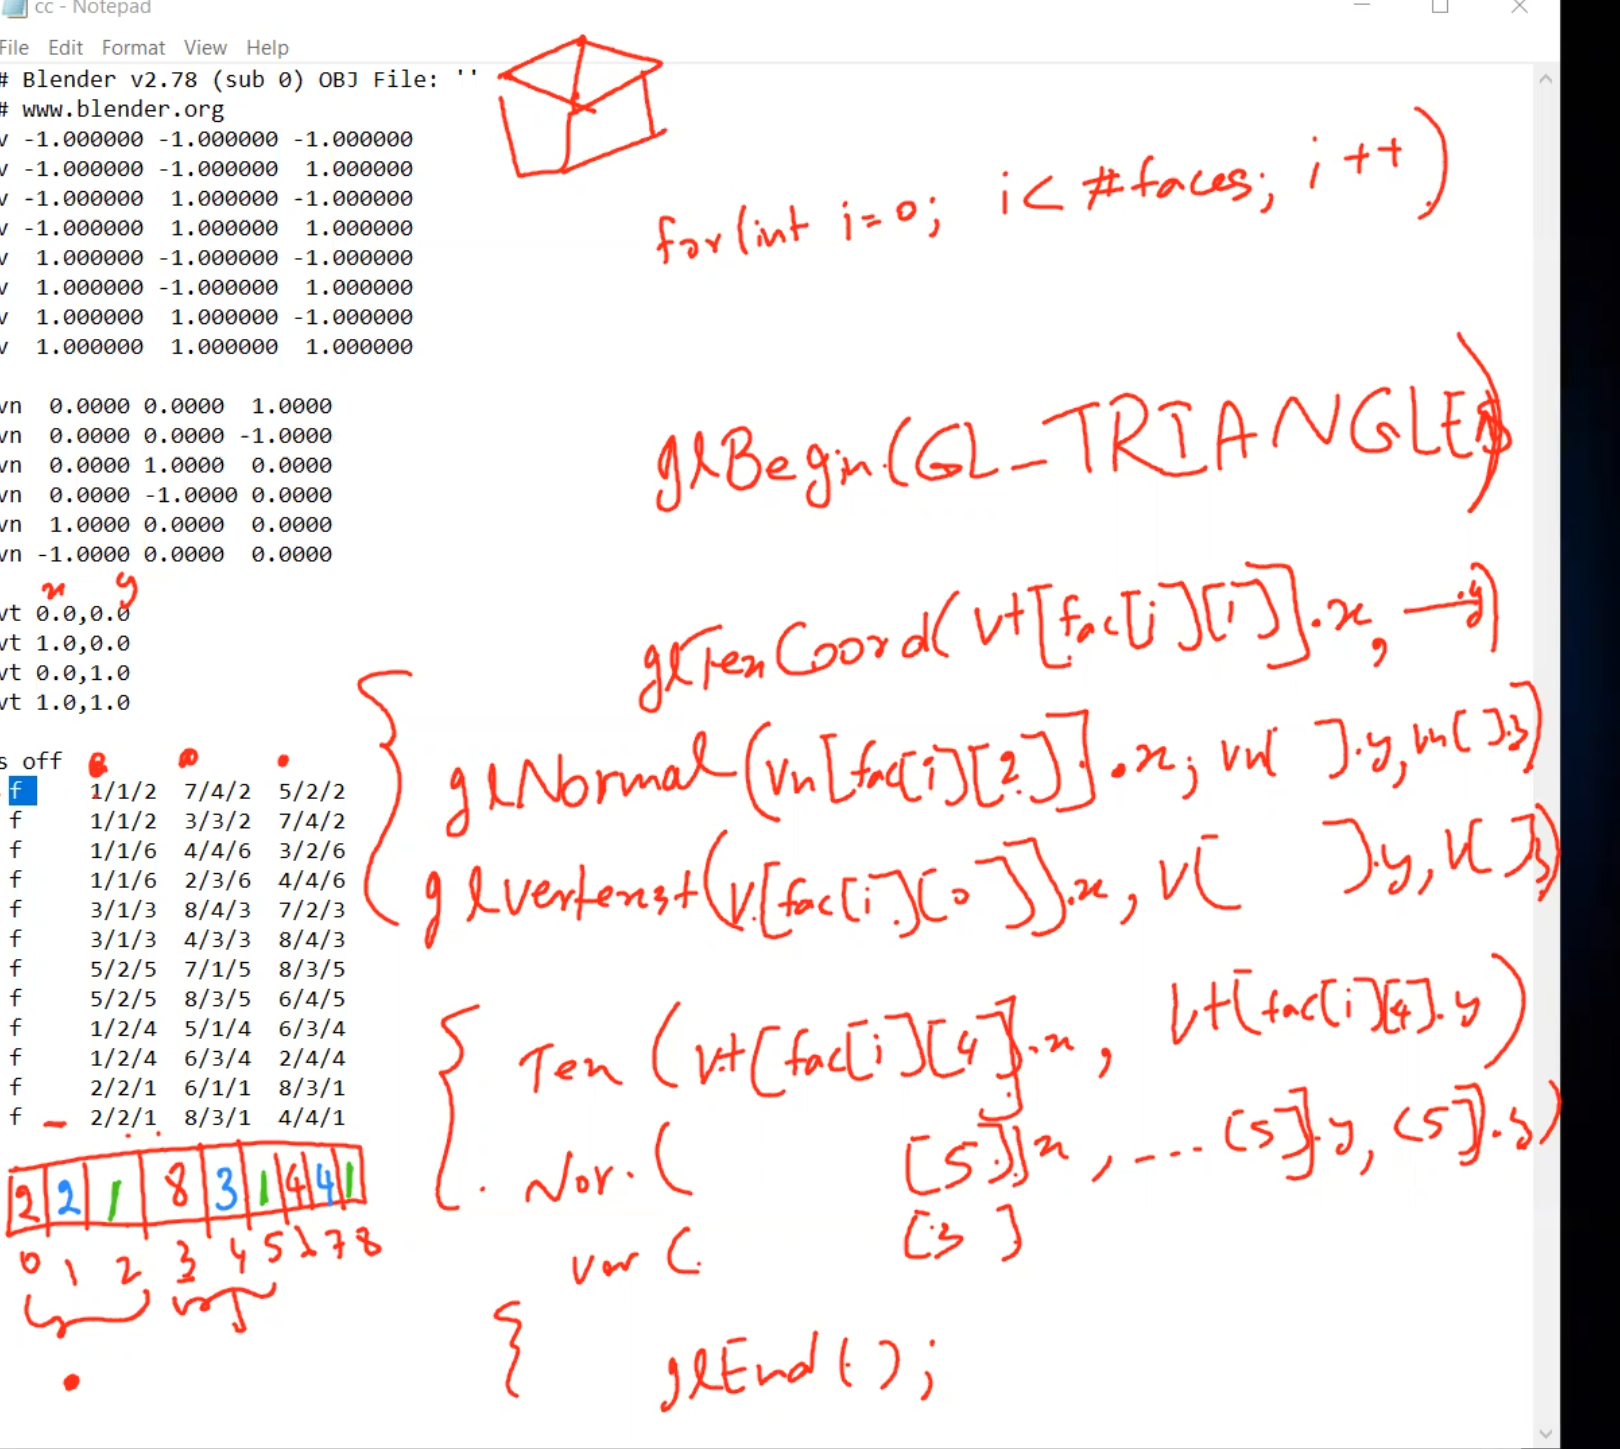 cc - Notepad
File Edit Format View Help
# Blender v2.78 (sub 0) OBJ File: ''
# www.blender.org
v -1.000000 -1.000000 -1.000000
v -1.000000 -1.000000 1.000000
v -1.000000 1.000000 -1.000000
v -1.000000 1.000000 1.000000
v 1.000000 -1.000000 -1.000000
v 1.000000 -1.000000 1.000000
v 1.000000 1.000000 -1.000000
v 1.000000 1.000000 1.000000
vn 0.0000 0.0000 1.0000
vn 0.0000 0.0000 -1.0000
vn 0.0000 1.0000 0.0000
vn 0.0000 -1.0000 0.0000
vn 1.0000 0.0000 0.0000
vn -1.0000 0.0000 0.0000
x y
vt 0.0,0.0
vt 1.0,0.0
vt 0.0,1.0
vt 1.0,1.0
s off
f 1/1/2 7/4/2 5/2/2
f 1/1/2 3/3/2 7/4/2
f 1/1/6 4/4/6 3/2/6
f 1/1/6 2/3/6 4/4/6
f 3/1/3 8/4/3 7/2/3
f 3/1/3 4/3/3 8/4/3
f 5/2/5 7/1/5 8/3/5
f 5/2/5 8/3/5 6/4/5
f 1/2/4 5/1/4 6/3/4
f 1/2/4 6/3/4 2/4/4
f 2/2/1 6/1/1 8/3/1
f 2/2/1 8/3/1 4/4/1
2 2 1 8 3 1 4 4 1
0 1 2 3 4 5 6 7 8
for(int i=0; i< #faces; i++)
glBegin(GL_TRIANGLES)
glTexCoord(vt[fac[i][1]].x, — .y)
glNormal(vn[fac[i][2]].x, vn[ ].y, vn[ ].z)
glVertex3f(v[fac[i][0]].x, v[ ].y, v[ ].z)
Tex (vt[fac[i][4]].x, vt[fac[i][4].y)
Nor. ( [5]]x, ... [5]].y, [5]].z)
ver ( [3 ]
glEnd();